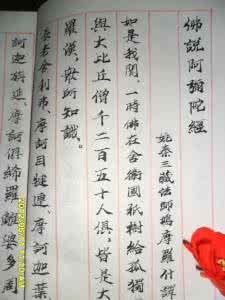 佛說阿彌陀經
姚秦三藏法師鳩摩羅什譯
如是我聞。一時佛在舍衛國祇樹給孤獨
與大比丘僧千二百五十人俱。皆是大
羅漢。眾所知識。
長老舍利弗、摩訶目犍連、摩訶迦葉
訶迦旃延、摩訶俱絺羅離婆多周